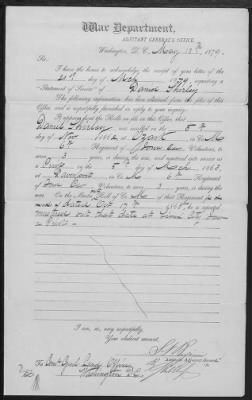 War Department,
ADJUTANT GENERAL'S OFFICE,
Washington, D. C., May 13th, 1879.
Sir:
I have the honor to acknowledge the receipt of your letter of the
21st day of Mch, 1879, requesting a
"Statement of Service" of Daniel Shirley
The following information has been obtained from the files of this
Office, and is respectfully furnished in reply to your inquiry:
It appears from the Rolls on file in this Office, that
Daniel Shirley was enrolled on the 5th
day of Nov 186 at in Co
6th Regiment of Iowa Cav Volunteers, to
serve 3 years, or during the war, and mustered into service as
a on the 5th day of March, 1863,
at Davenport in Co 6th Regiment
of Iowa Cav Volunteers, to serve 3 years, or during the
war. On the Muster Roll of Co of that Regiment for the
dated Oct 17th 1865, he is reported
mustered out that date at Sioux City Iowa
I am, sir, very respectfully,
Your obedient servant,
Assistant Adjutant General
Washington D.C.